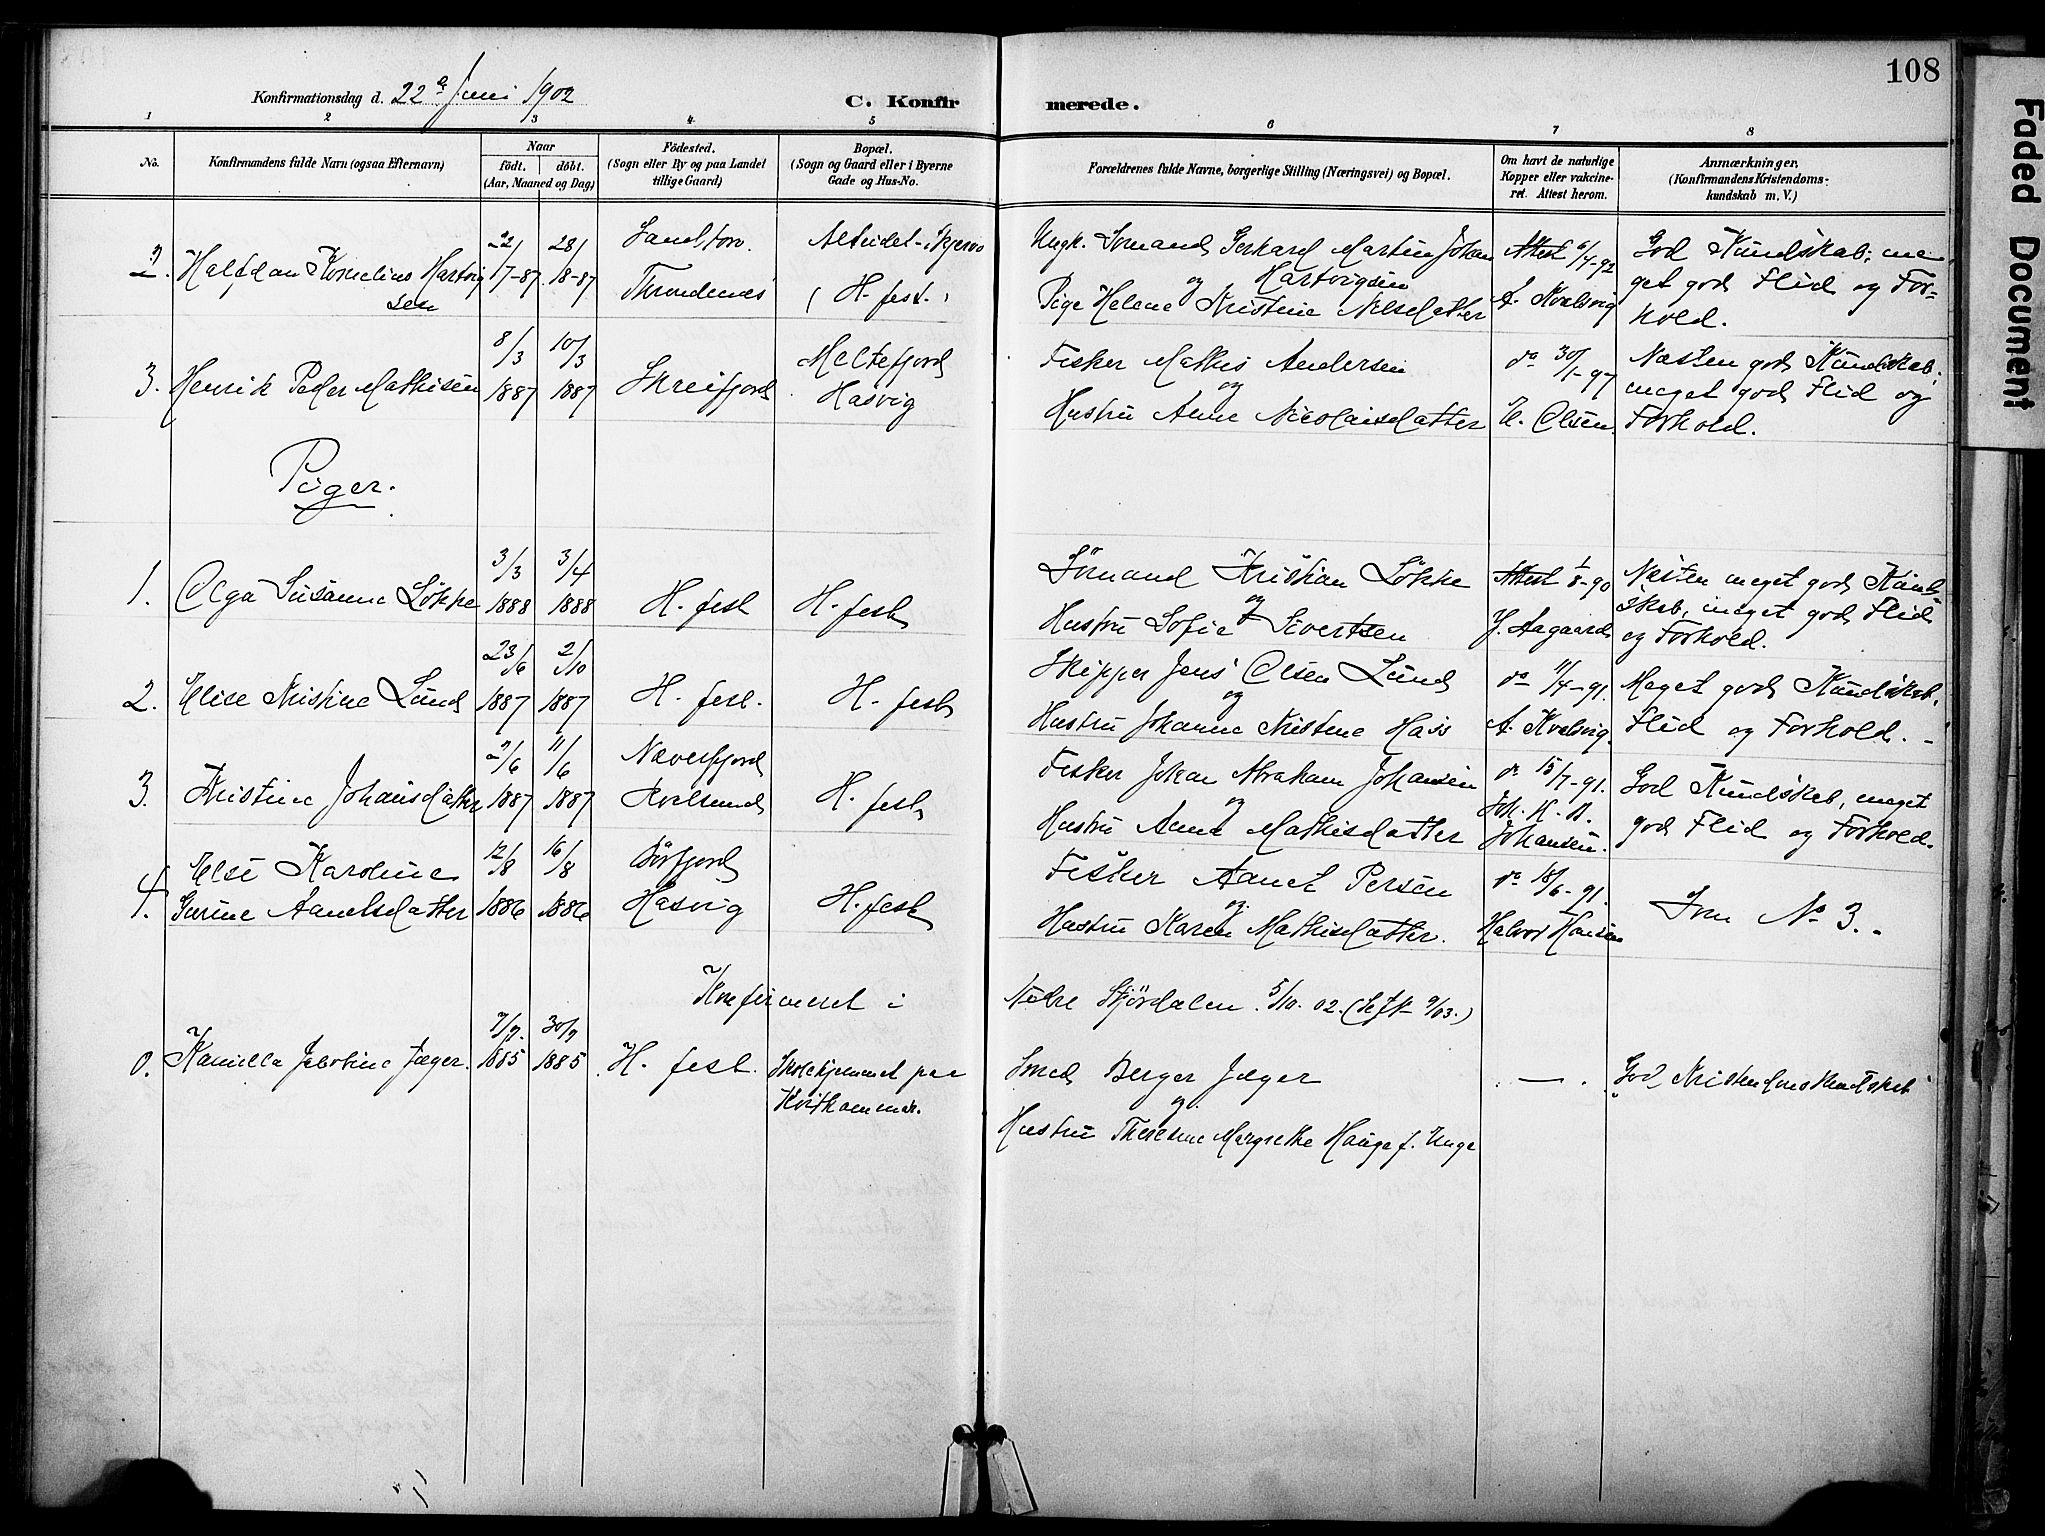 108
Faded Document
Konfirmationsdag d. 22de Juni 1902
C. Konfirmerede.
1 2 3 4 5 6 7 8
No.
Konfirmandens fulde Navn (ogsaa Efternavn)
Naar
födt. döbt.
(Aar, Maaned og Dag)
Födested.
(Sogn eller By og paa Landet
tillige Gaard)
Bopæl.
(Sogn og Gaard eller i Byerne
Gade og Hus-No.
Forældrenes fulde Navne, borgerlige Stilling (Næringsvei) og Bopæl.
Om havt de naturlige
Kopper eller vakcine-
ret. Attest herom.
Anmærkninger.
(Konfirmandens Kristendoms-
kundskab m. V.)
2. Halfdan Kornelius Hartvig
sen
22/ 28/
17-87 18-87
Sandtorv.
Throndenæs
Alteidet
(H. fest.)
Ungk. Sømand Gerhard Martin Johan
Hartvigsen
og
Pige Helene Kristine Nilsdatter
Attest 6/4-92
A. Kvalsvig
God Kundskab; me
get god Flid og For-
hold.
3. Henrik Peder Mathisen
8/3 10/3
1887 1887
Skreifjord
Meltefjord
Hasvig
Fisker Mathis Andersen
og
Hustru Anne Nicolaisdatter
do 30/1-97
E. Olsen.
Næsten god Kundskab,
meget god Flid og
Forhold.
Piger.
1. Olga Susanne Løkke
3/3 3/4
1888 1888
H. fest
H. fest
Sømand Kristian Løkke
og
Hustru Sofie Sivertsen
Attest 1/8-90
J. Aagaard
Næsten meget god Kund-
skab, meget god Flid
og Forhold.
2. Elise Kristine Lund
23/6 2/10
1887 1887
H. fest.
H. fest
Skipper Jens Olsen Lund
og
Hustru Johanne Kristine Hass
do 11/4-91.
A. Kvalsvig.
Meget god Kundskab,
Flid og Forhold. -
3. Kristine Johansdatter
2/6 11/6
1887 1887
Naverfjord
Kvalsund
H. fest
Fisker Johan Abraham Johansen
og
Hustru Anne Mathisdatter
do 15/7-91.
Joh. H. A.
Johansen.
God Kundskab, meget
god Flid og Forhold.
4. Else Karoline
Gurine Aanetsdatter
12/8 16/8
1886 1886
Børfjord
Hasvig
H. fest
Fisker Aanet Persen
og
Hustru Karen Mathisdatter.
do 18/6-91.
Halvor Hansen
Som No 3. -
Konfirmeret i Nedre Stjørdalen. 5/10. 02. (
0. Kamilla Jakobine Jæger.
7/7. 30/9
1885 1885
H. fest.
Skolehjemmet paa
Kvithammer.
Smed Berger Jæger
og
Hustru Theresine Margrethe Hauge f. Unge
. — .
God Kristendomskundskab